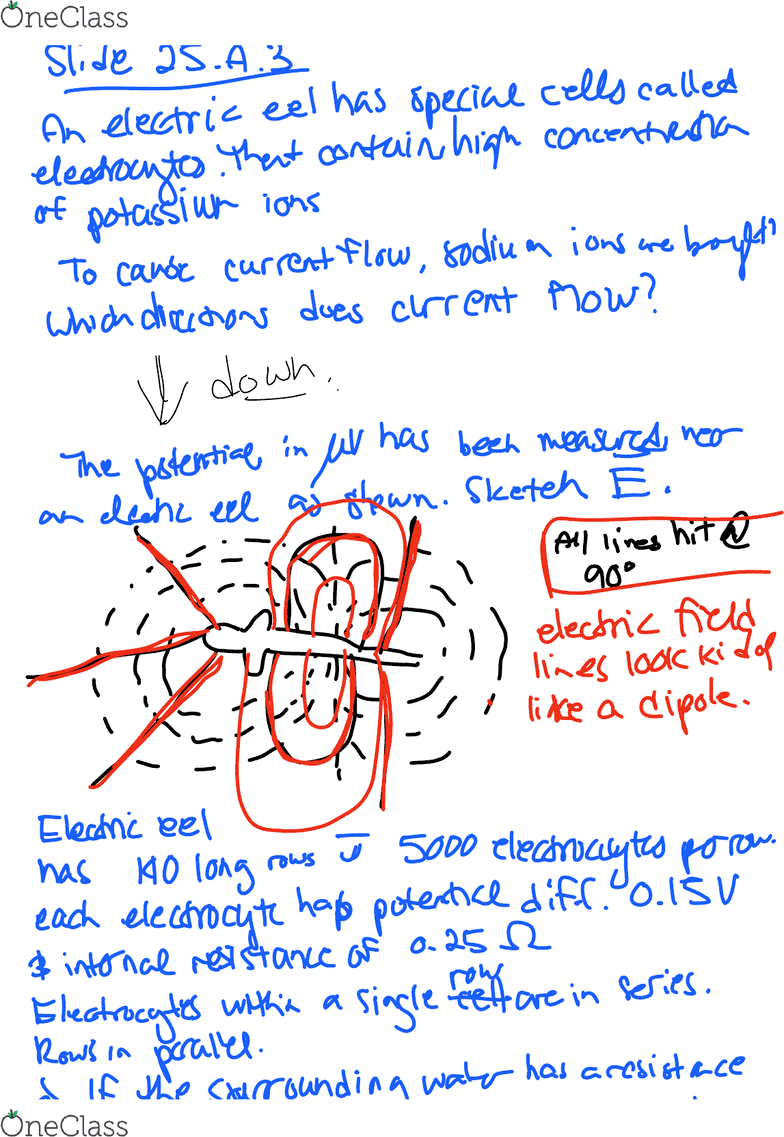 OneClass
Slide 25.A.3
An electric eel has special cells called
electrocytes. That contain high concentration
of potassium ions
To cause current flow, sodium ions are
which directions does current flow?
down.
The potential in μV has been measured near
an electric eel as shown. Sketch E.
All lines hit @
90°
electric field
lines look kind of
like a dipole.
Electric eel
has 140 long rows 5000 electrocytes per row.
each electrocyte has potential diff. 0.15V
& internal resistance of 0.25 Ω
Electrocytes within a single row are in series.
Rows in parallel.
If the surrounding water has a resistance
OneClass